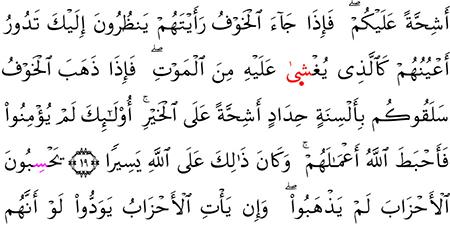 أَشِحَّةً عَلَيْكُمْ ۖ فَإِذَا جَآءَ ٱلْخَوْفُ رَأَيْتَهُمْ يَنظُرُونَ إِلَيْكَ تَدُورُ
أَعْيُنُهُمْ كَٱلَّذِى يُغْشِىٰ عَلَيْهِ مِنَ ٱلْمَوْتِ ۖ فَإِذَا ذَهَبَ ٱلْخَوْفُ
سَلَقُوكُم بِأَلْسِنَةٍ حِدَادٍ أَشِحَّةً عَلَى ٱلْخَيْرِ ۚ أُو۟لَـٰٓئِكَ لَمْ يُؤْمِنُوا۟
فَأَحْبَطَ ٱللَّهُ أَعْمَـٰلَهُمْ ۚ وَكَانَ ذَٰلِكَ عَلَى ٱللَّهِ يَسِيرًا ﴿١٩﴾ يَحْسِبُونَ
ٱلْأَحْزَابَ لَمْ يَذْهَبُوا۟ ۖ وَإِن يَأْتِ ٱلْأَحْزَابُ يَوَدُّوا۟ لَوْ أَنَّهُم